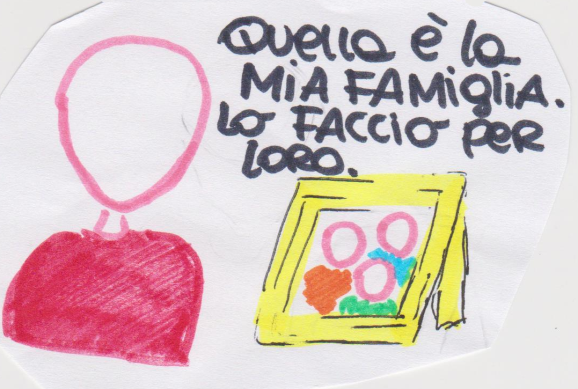 Quella è la
MiA FAMigliA.
Lo FACCio PeR
LORO.